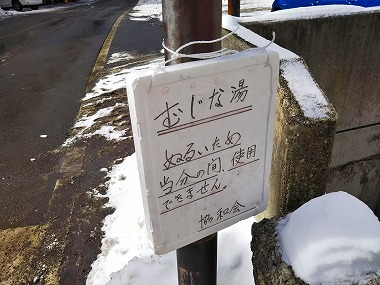 むじな湯
ぬるいため
当分の間、使用
できません。
協和会